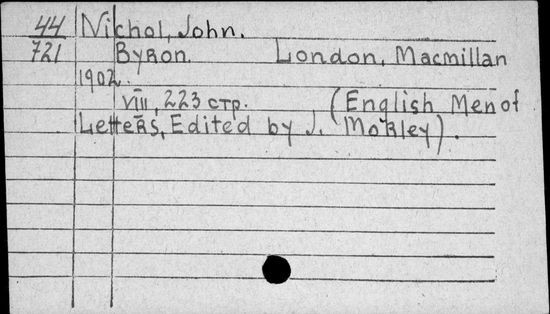 44 Nichol, John.
721 Byron. London, Macmillan
1902.
VIII, 223 стр. (English Men of
Letters, Edited by J. Morley).